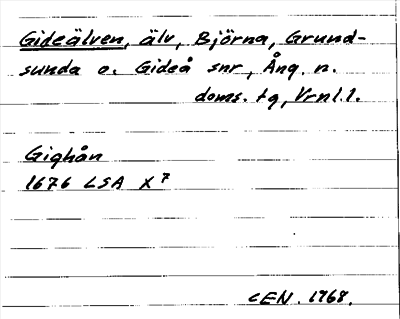 Gideälven, älv, Björna, Grund-
sunda o. Gideå snr, Ång. n.
doms. tg, Vrnl. l.
Gighån
1676 LSA X 7
CEN. 1968.